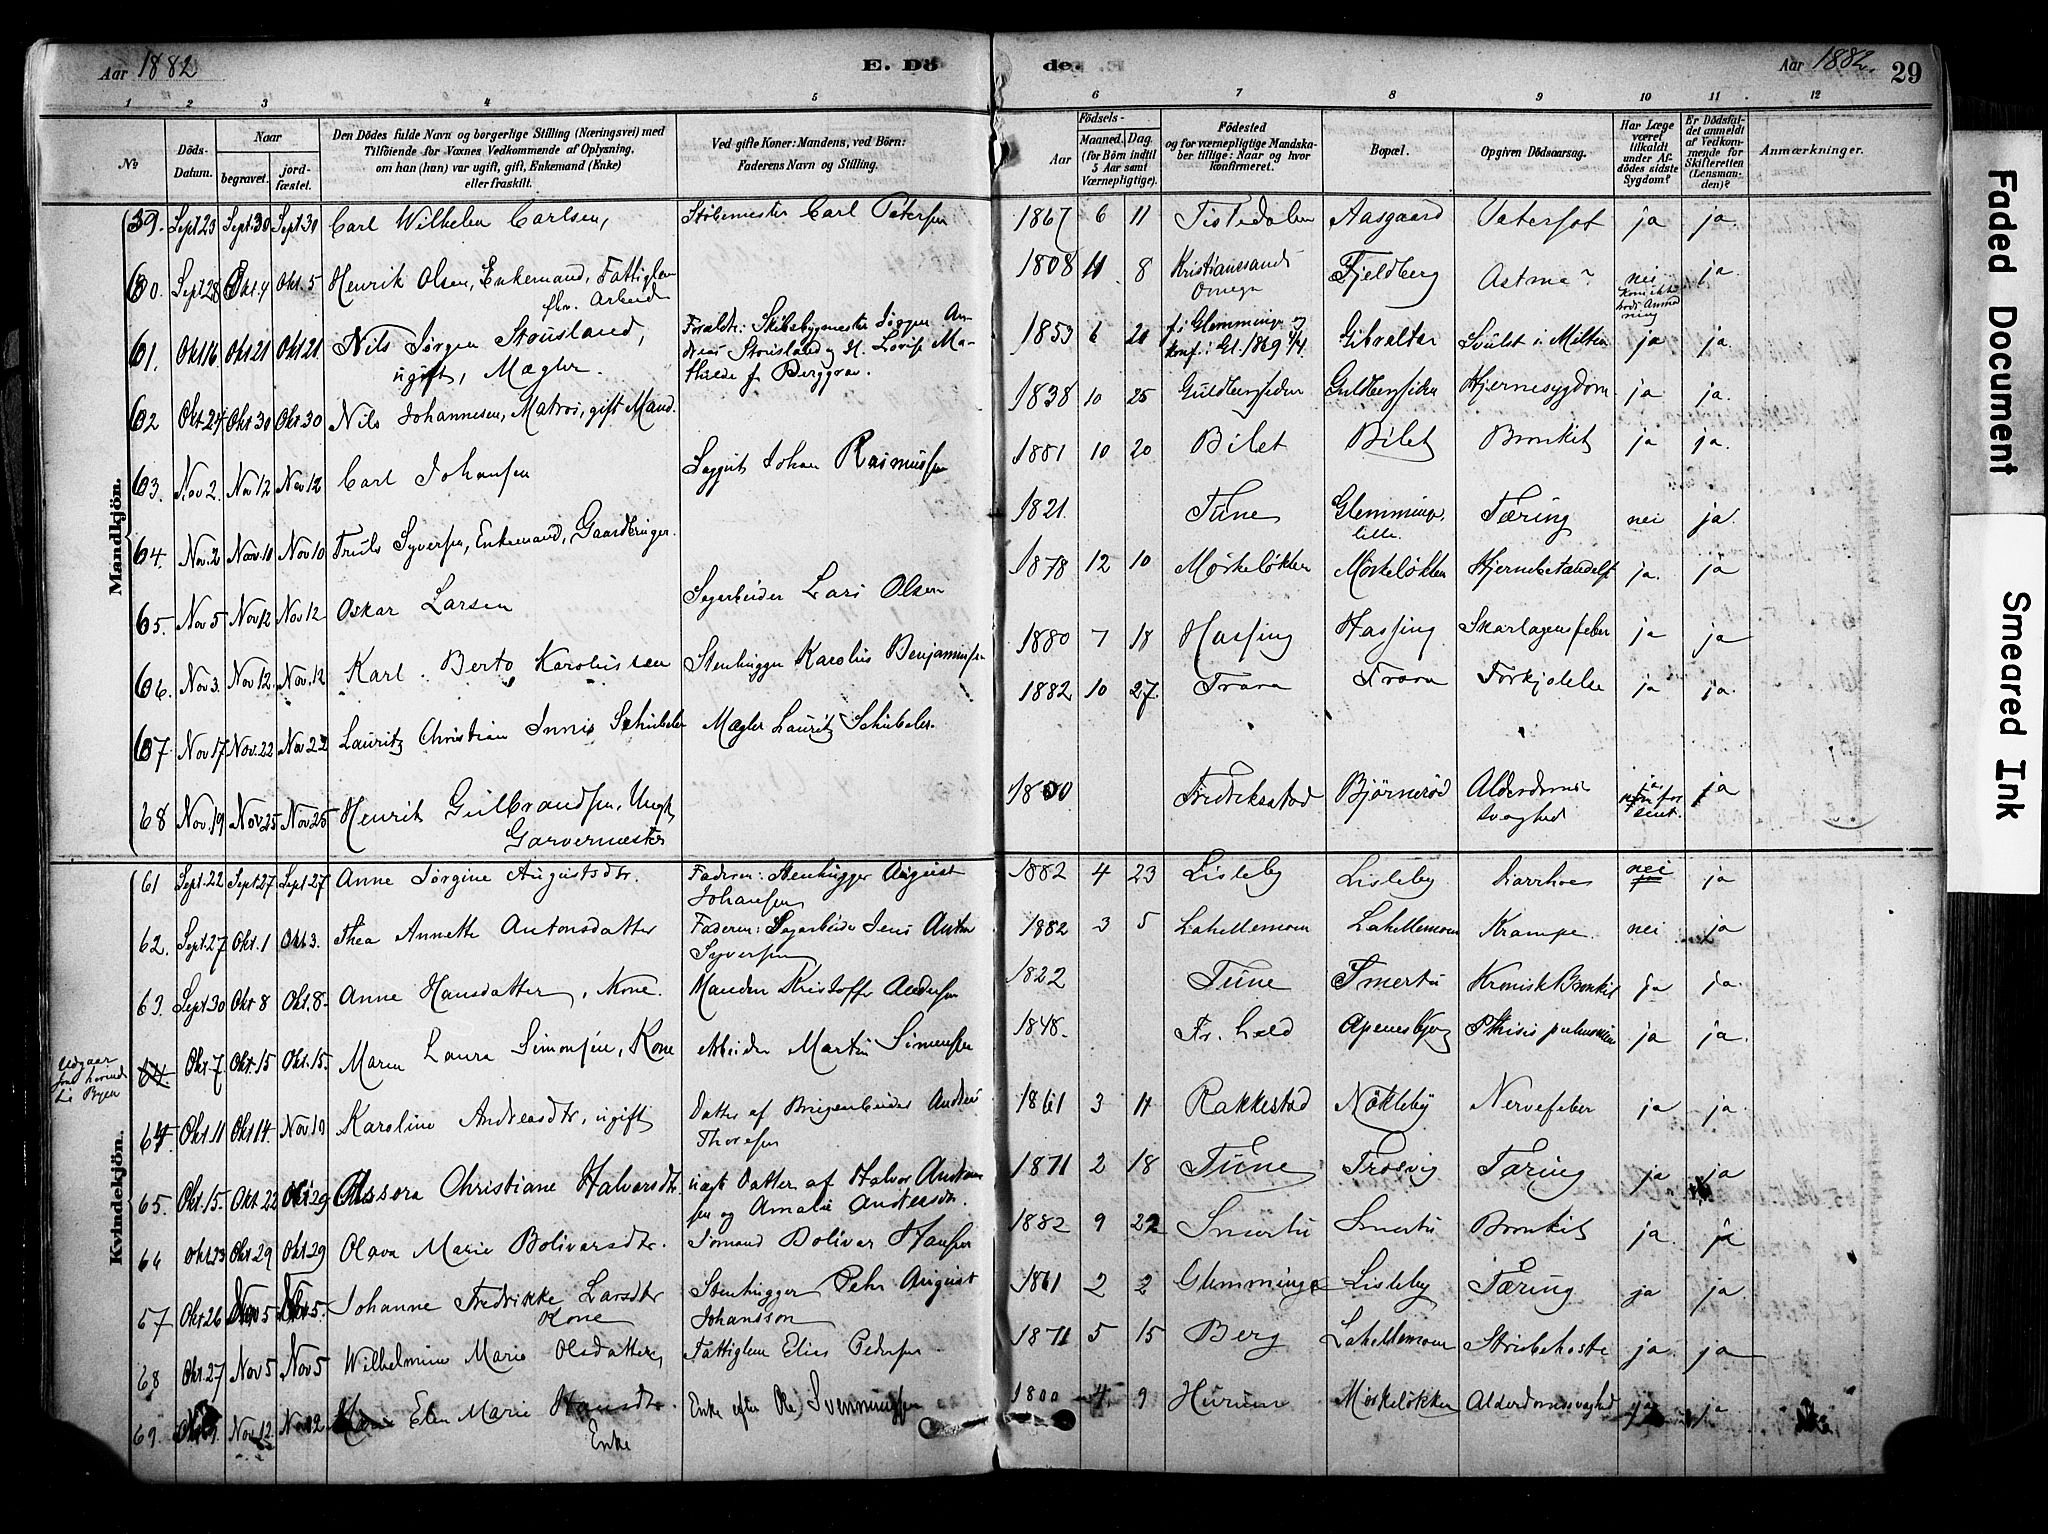 Aar 1882
E. Dö
de.
Aar 1882.
29
1 2 3 4 5 6 7 8 9 10 11 12
№
Döds-
Datum.
Naar
begravet.
jord-
fæstet.
Den Dödes fulde Navn og borgerlige Stilling (Næringsvei) med
Tilföiende for Voxnes Vedkommende af Oplysning,
om han (hun) var ugift, gift, Enkemand (Enke)
eller fraskilt.
Ved gifte Koner: Mandens, ved Börn:
Faderens Navn og Stilling.
Födsels-
Aar
Maaned. Dag.
(for Börn indtil
5 Aar samt
Værnepligtige).
Födested
og for værnepligtige Mandska-
ber tillige: Naar og hvor
konfirmeret.
Bopæl.
Opgiven Dödsaarsag.
Har Læge
været
tilkaldt
under Af-
dödes sidste
Sygdom?
Er Dödsfal-
det anmeldt
af Vedkom-
mende for
Skifteretten
(Lensman-
den)?
Anmærkninger.
Mandkjön.
59. Sept 23 Sept 30 Sept 30 Carl Wilhelm Carlsen, Støbemester Carl Petersen 1867 6 11 Tistedalen Aasgaard Vatersot ja ja.
60. Sept 28 Okt. 4 Okt. 5 Henrik Olsen, Enkemand, Fattiglem 1808 11 8 Kristianssands Fjeldberg Astma nei ja.
fhv. Arbeid
Omegn
61. Okt 16 Okt 21 Okt 21. Nils Jørgen Strusland, Foraldr: Skibsbygmester Jørgen An- 1853 6 21 f. i Glemminge og Gibraltar Svulst i Milten ja ja.
ugift, Mægler. dreas Strusland og H. Lovise Ma-
konf. i Gl. 1869
thilde f. Berggrav.
62 Okt. 24 Okt 30 Okt 30 Nils Johannesen, Matros, gift Mand. 1838 10 25 Guldbergsiden Guldbergsiden Hjernesygdom ja ja.
63. Nov 2. Nov 12 Nov 12 Carl Johansen Johan Rasmussen 1881 10 20 Bilet Bilet Bronkit ja ja.
64. Nov. 2 Nov. 10 Nov 10 Truls Syversen, Enkemand, Gaardbruger. 1821. Tune Glemminge, Tæring nei ja.
lille.
65. Nov 5 Nov 12 Nov 12 Oskar Larsen Sagarbeider Lars Olsen 1878 12 10 Mørkeløkken Mørkeløkken Hjernebetændelse ja. ja
66. Nov 3. Nov 12. Nov. 12 Karl Berto Karoliussen Stenhugger Karolius Benjaminsen 1880 7 18 Hassing Hassing Skarlagensfeber ja ja
67 Nov 17 Nov. 22 Nov 22 Lauritz Christian Innis Schübeler Mægler Lauritz Schübeler. 1882 10 27. Trara Trara Forkjølelse ja ja.
68 Nov 19 Nov 25 Nov 25 Henrik Gulbrandsen, Ungk. 1800 Fredrikstad Bjørnerød Alderdoms- ja, ja
Garvermester
svaghed
men for
sent.
Kvindekjön.
61 Sept. 22 Sept 27 Sept 27 Anne Jørgine Augustsdtr. Faderen: Stenhugger August 1882 4 23 Lisleby Lisleby Diarrhoe nei ja
Johansen
62. Sept. 27 Okt. 1 Okt 3. Thea Annette Antonsdatter Faderen: Sagarbeider Jens Anton 1882 3 5 Lahellemoen Lahellemoen Krampe. nei ja
Syversen
63. Sept. 30 Okt 8 Okt. 8. Anne Hansdatter, Kone. Manden Kristoffer Andersen 1822 Tune Smertu Kronisk Bronkit ja ja.
Udgaar
64. Okt. 7 Okt. 15 Okt. 15. Maren Laura Simonsen, Kone Arbeider Martin Simensen 1848. Fr. hald Apenesbjerg Pthisis pulmonum ja ja.
64. Okt. 11 Okt 14. Nov 10 Karoline Andreasdtr, ugift Datter af Brugarbeider Andreas 1861 3 11 Rakkestad Nøkleby Nervefeber ja ja.
Thoresen
65. Okt. 15. Okt. 22 Okt 29 Assora Christiane Halvorsdtr. uægt Datter af Halvor Ander- 1871 2 18 Tune Trosvig Tæring ja ja
sen og Amalie Andersdtr.
66 Okt. 23 Okt. 29 Okt 29 Olava Marie Bolivarsdtr. Sømand Bolivar Hansen 1882 9 22 Smertu Smertu Bronkit ja. ja
67 Okt 26 Nov 5 Nov 5. Johanne Fredrikke Larsdtr Stenhugger Pehr August 1861 2 2 Glemminge Lisleby Tæring ja ja
Kone Johansson
68 Okt. 27 Nov 5 Nov 5 Wilhelmine Marie Olsdatter, Fattiglem Elias Pedersen. 1871 5 15 Berg Lahellemoen Strubehoste ja ja
69. Nov 12. Nov 12 Elen Marie Hansdtr. Enke efter Ole Svenningsen 1800 4 9 Hurum Mørkeløkken Alderdomssvaghed ja ja
Enke
Faded Document
Smeared Ink